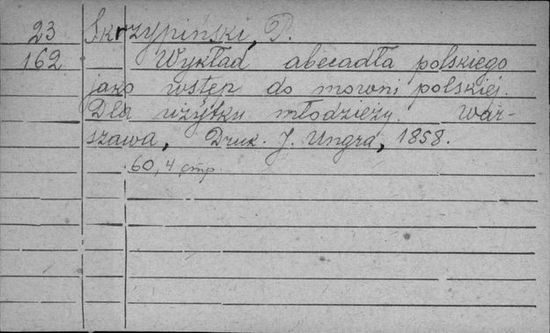 23 Skrzypiński, D.
162 Wykład abecadła polskiego
jako wstęp do mowni polskiej.
Dla użytku młodzieży. War-
szawa, Druk. J. Ungra, 1858.
60, 4